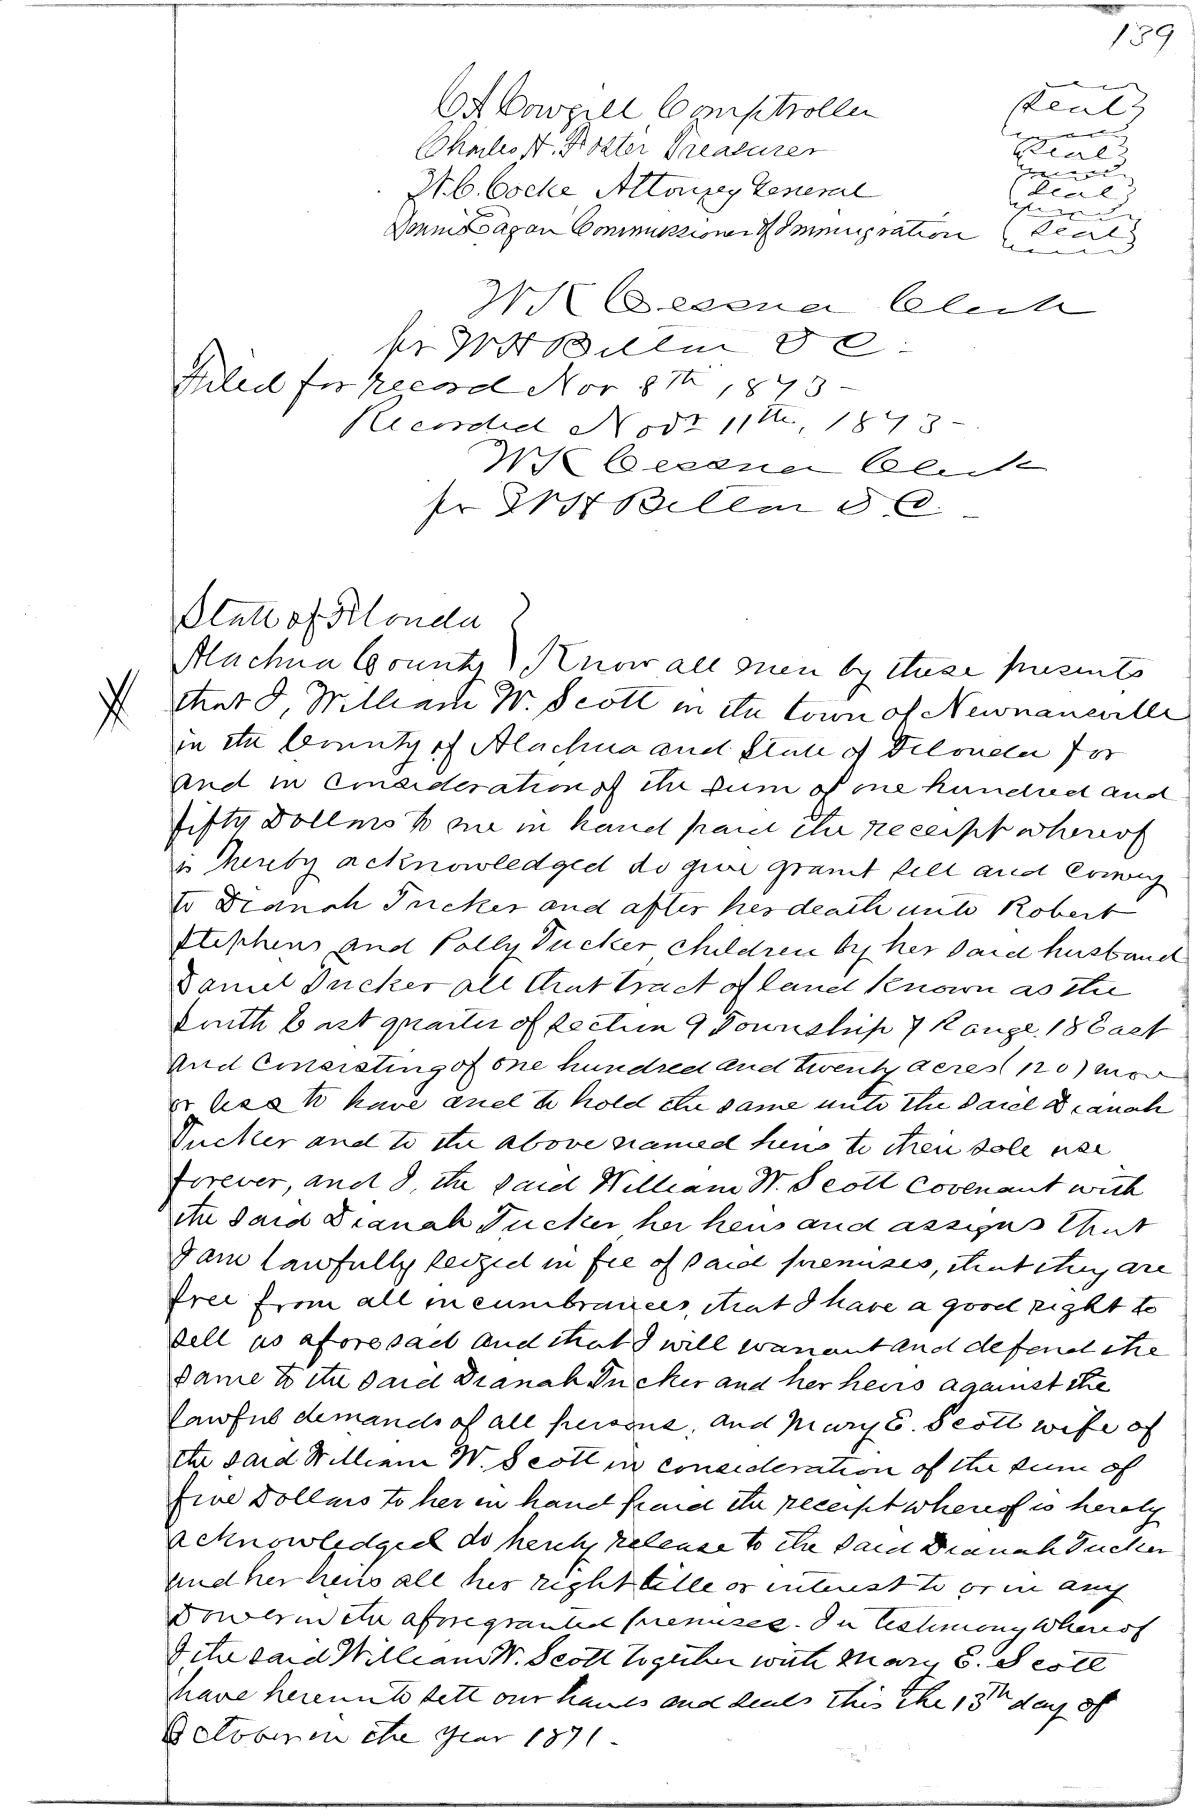 139
C A Cowgill Comptroller (Seal)
Charles H. Foster Treasurer (Seal)
W. C. Cocke, Attorney General (Seal)
Dennis Eagan Commissioner of Immigration (Seal)
W K Cessna Clerk
pr W H Belton D C.
Filed for record Nov 8th 1873 -
Recorded Novr 11th, 1873 -
W K Cessna Clerk
pr W H Belton D C. -
State of Florida }
Alachua County } Know all men by these presents
that I, William W. Scott in the town of Newnansville
in the County of Alachua and State of Florida for
and in consideration of the sum of one hundred and
fifty Dollars to me in hand paid the receipt whereof
is hereby acknowledged do give grant sell and convey
to Dianah Tucker and after her death unto Robert
Stephens and Polly Tucker, children by her said husband
Daniel Tucker all that tract of land known as the
South East quarter of section 9 Township 7 Range 18 East
and consisting of one hundred and twenty acres (120) more
or less to have and to hold the same unto the said Dianah
Tucker and to the above named heirs to their sole use
forever, and I, the said William W. Scott covenant with
the said Dianah Tucker, her heirs and assigns that
I am lawfully seized in fee of said premises, that they are
free from all incumbrances, that I have a good right to
sell as aforesaid and that I will warrant and defend the
same to the said Dianah Tucker and her heirs against the
lawful demands of all persons, and Mary E. Scott wife of
the said William W. Scott in consideration of the sum of
five Dollars to her in hand paid the receipt whereof is hereby
acknowledged do hereby release to the said Dianah Tucker
and her heirs all her right title or interest to or in any
Dower in the aforegranted premises. In testimony whereof
I the said William W. Scott together with Mary E. Scott
have hereunto sett our hands and seals this the 13th day of
October in the year 1871.